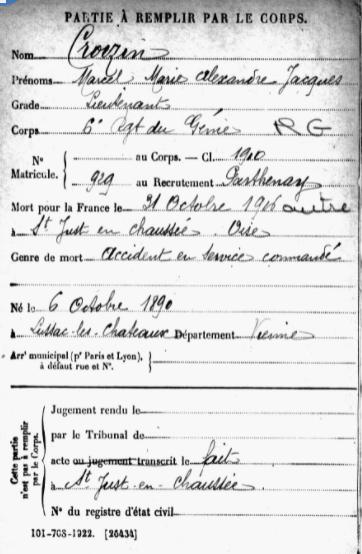 PARTIE À REMPLIR PAR LE CORPS.
Nom Croizin
Prénoms Marcel Marie Alexandre Jacques
Grade Lieutenant
Corps 6e Rgt du Génie RG
N° Matricule. { au Corps. — Cl. 1910
929 au Recrutement Parthenay
Mort pour la France le 31 Octobre 1916 autre
à St Just en chaussée Oise
Genre de mort Accident en service commandé
Né le 6 Octobre 1890
à Lussac-les-Chateaux Département Vienne
Arrt municipal (pr Paris et Lyon), à défaut rue et N°.
Cette partie n'est pas à remplir par le Corps.
Jugement rendu le
par le Tribunal de
acte ou jugement transcrit le fait
à St Just-en-Chaussée
N° du registre d'état civil
101-708-1922. [26434]